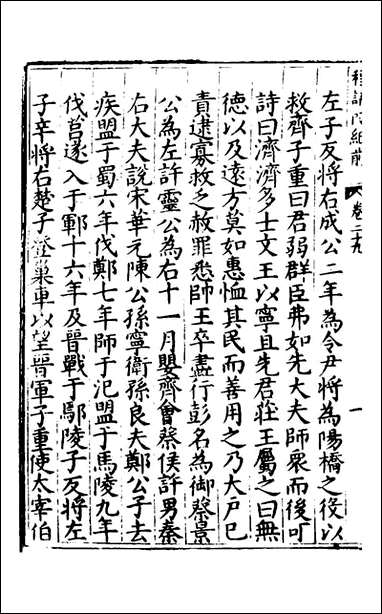 左子反將右成公二年為令尹將為陽橋之役以
救齊子重曰君弱群臣弗如先大夫師衆而後可
詩曰濟濟多士文王以寧且先君莊王屬之曰無
德以及遠方莫如惠恤其民而善用之乃大戶已
責逮寡救乏赦罪悉師王卒盡行彭名為御蔡景
公為左許靈公為右十一月嬰齊會蔡侯許男秦
右大夫說宋華元陳公孫寧衛孫良夫鄭公子去
疾盟于蜀六年伐鄭七年師于氾盟于馬陵九年
伐莒遂入于鄆十六年及晉戰于鄢陵子反將左
子辛將右楚子登巢車以望晉軍子重使太宰伯
卷二九
一